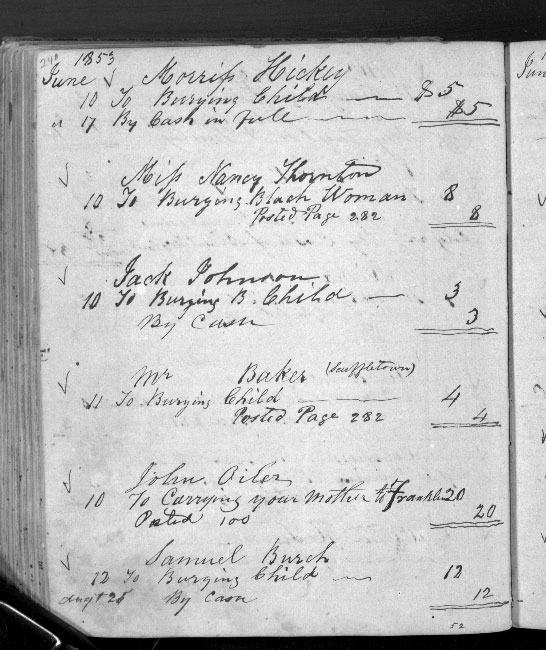 248 1853
June √ Morriss Hickey
10 To Burying Child — $5
" 17 By Cash in full — $5
√ Miss Nancy Thornton
10 To Burying Black Woman 8
Posted Page 282 8
√ Jack Johnson
10 To Burying B. Child — 3
By Cash 3
√ Mr Baker (Scuffletown)
11 To Burying Child — 4
Posted Page 282 4
√ John Oiler
10 To Carrying your Mother to Franklin 20
Posted 100 20
√ Samuel Burch
12 To Burying Child — 12
Augt 25 By Cash 12
52
June